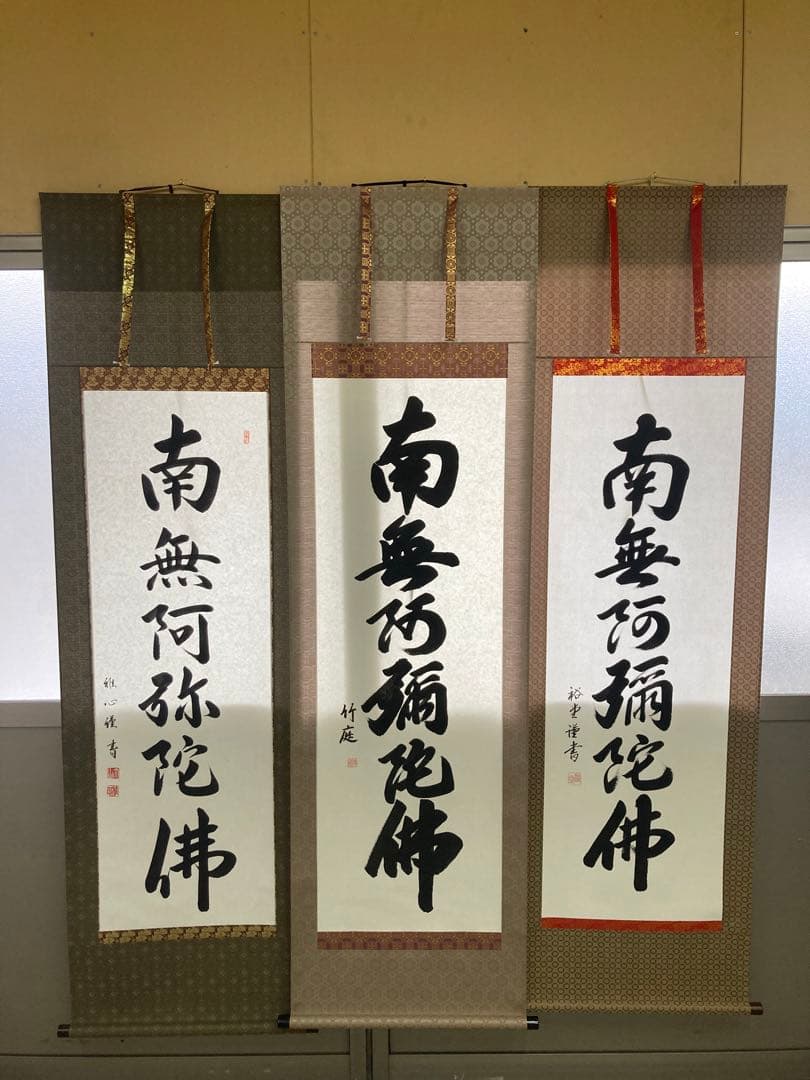 南無阿彌陀佛
裕堂謹書
南無阿彌陀佛
竹庭
南無阿弥陀佛
雅心謹書